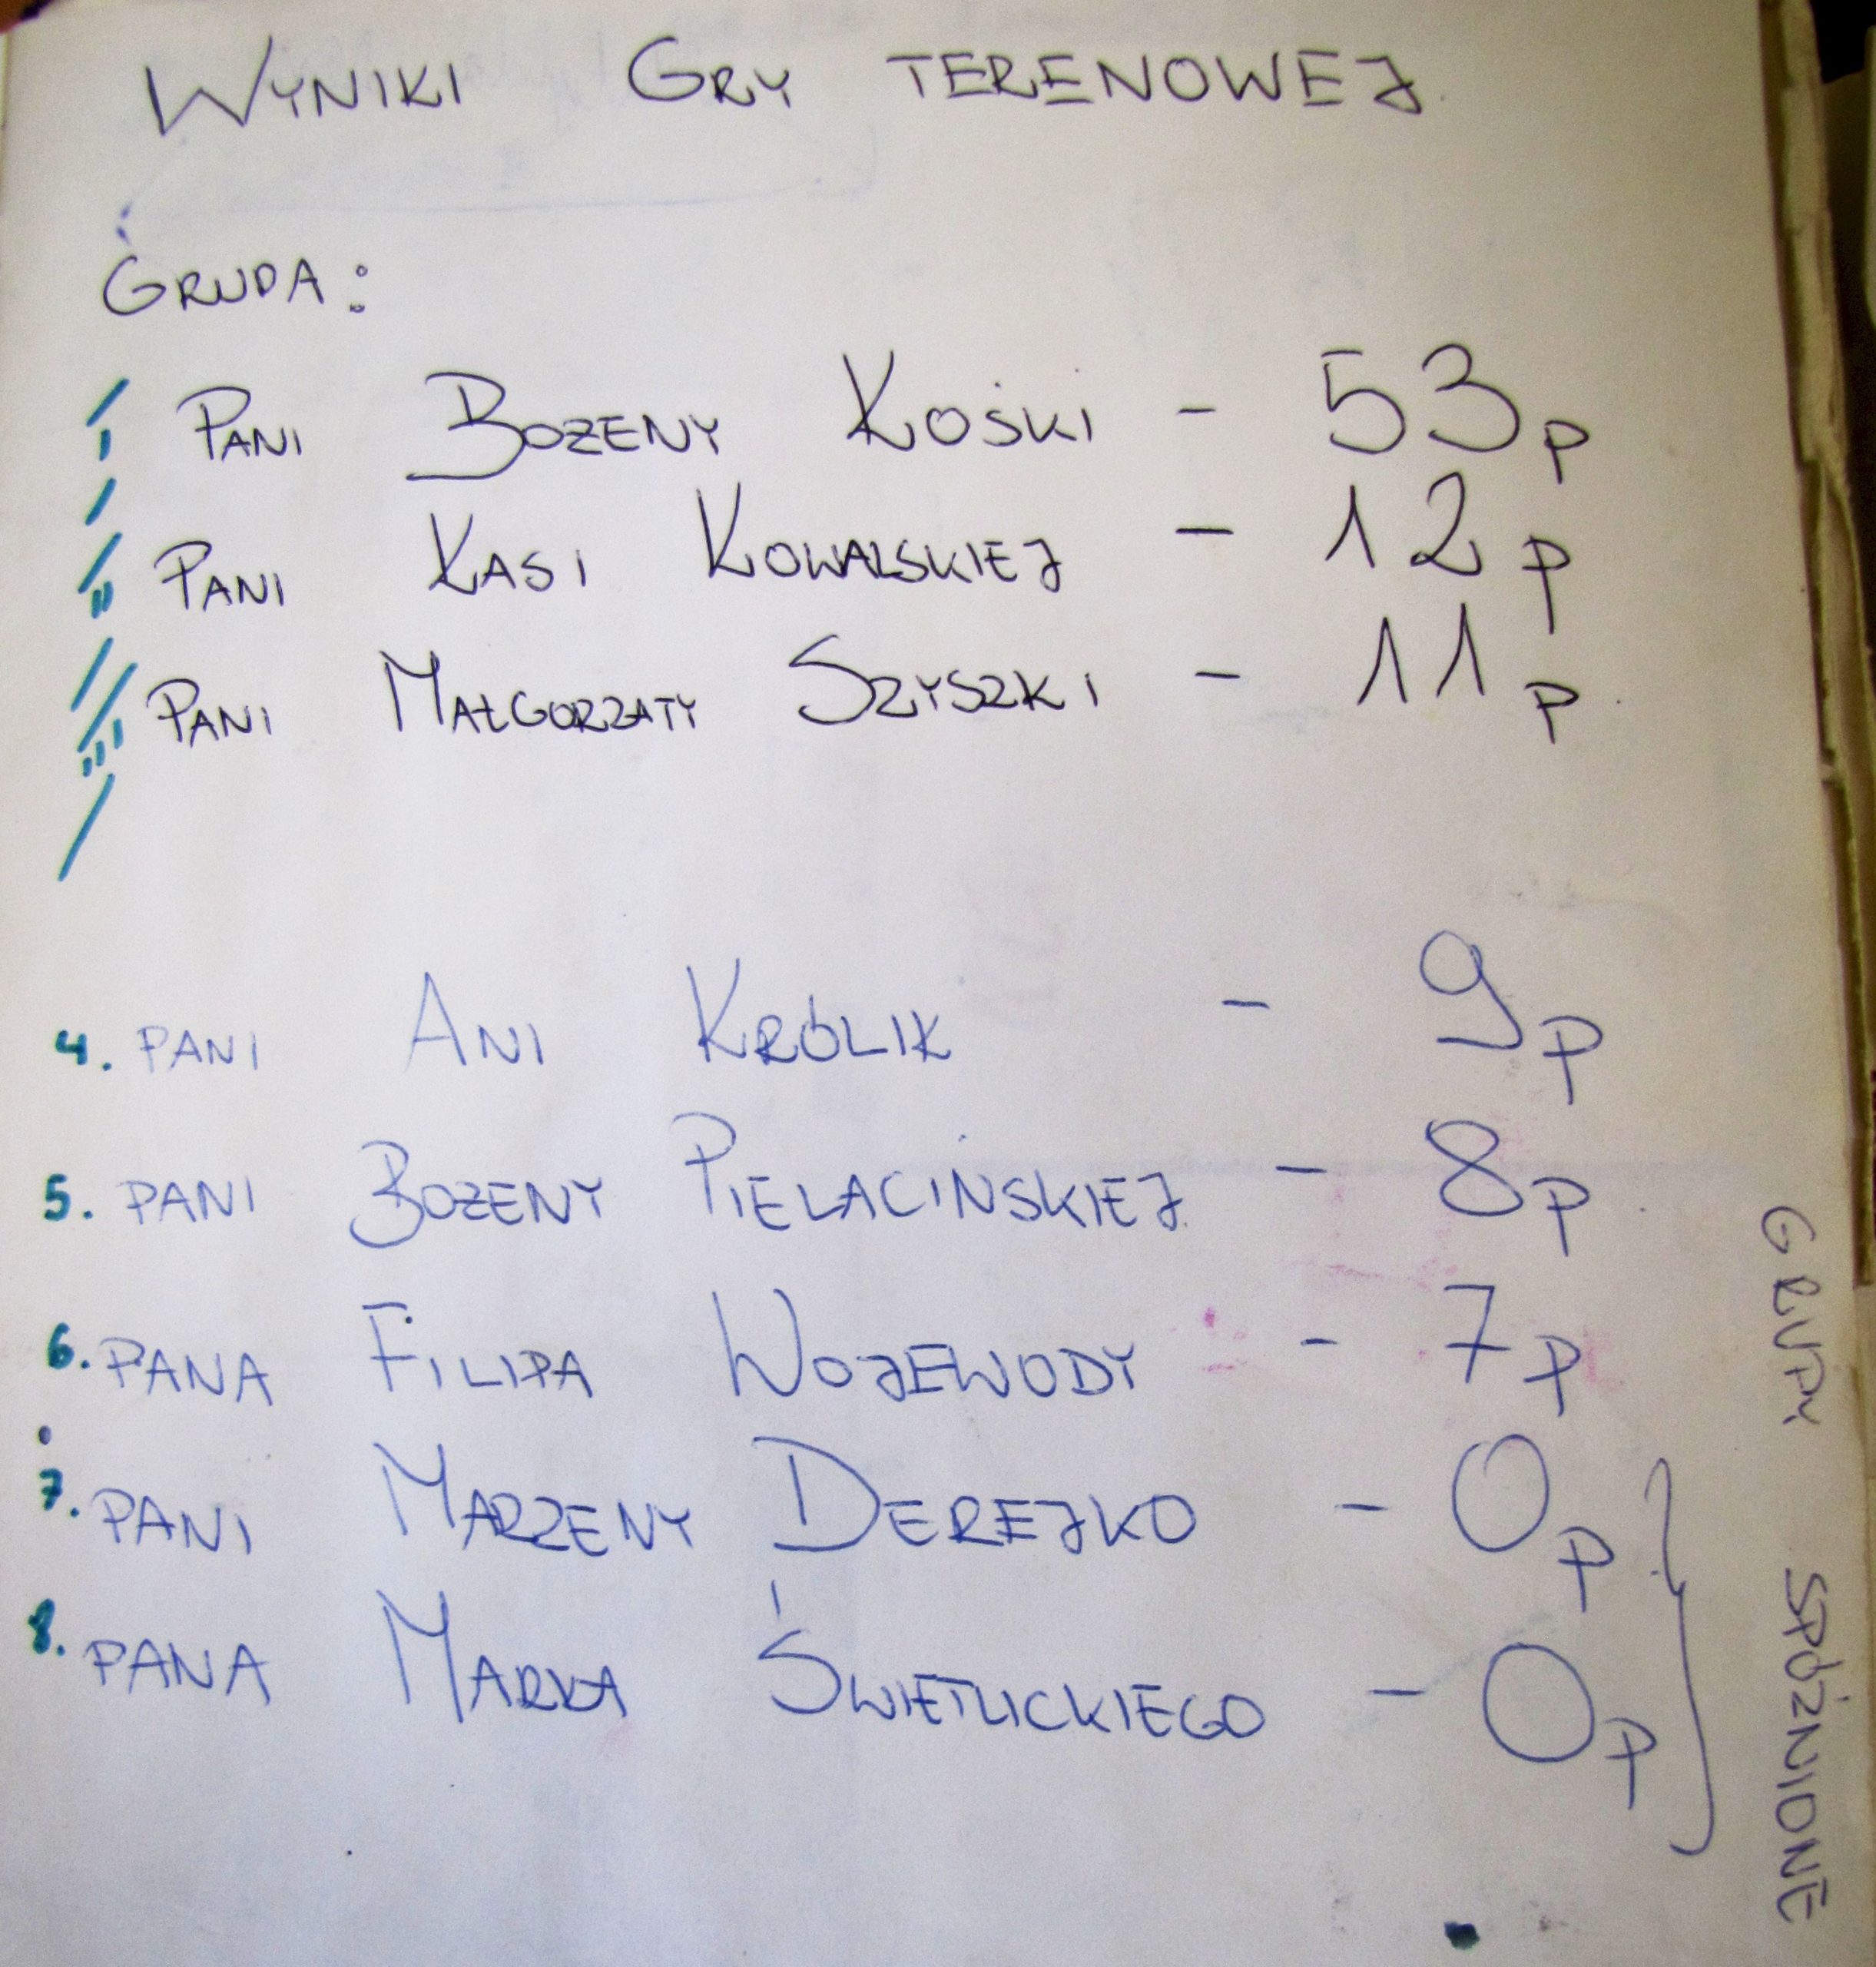 WYNIKI GRY TERENOWEJ
GRUPA:
PANI BOŻENY KOŚKI - 53p
PANI KASI KOWALSKIEJ - 12p
PANI MAŁGORZATY SZYSZKI - 11p
4. PANI ANI KRÓLIK - 9p
5. PANI BOŻENY PIELACIŃSKIEJ - 8p
6. PANA FILIPA WOJEWODY - 7p
7. PANI MARZENY DEREJKO - 0p
8. PANA MARKA ŚWIETLICKIEGO - 0p
GRUPY SPÓŹNIONE